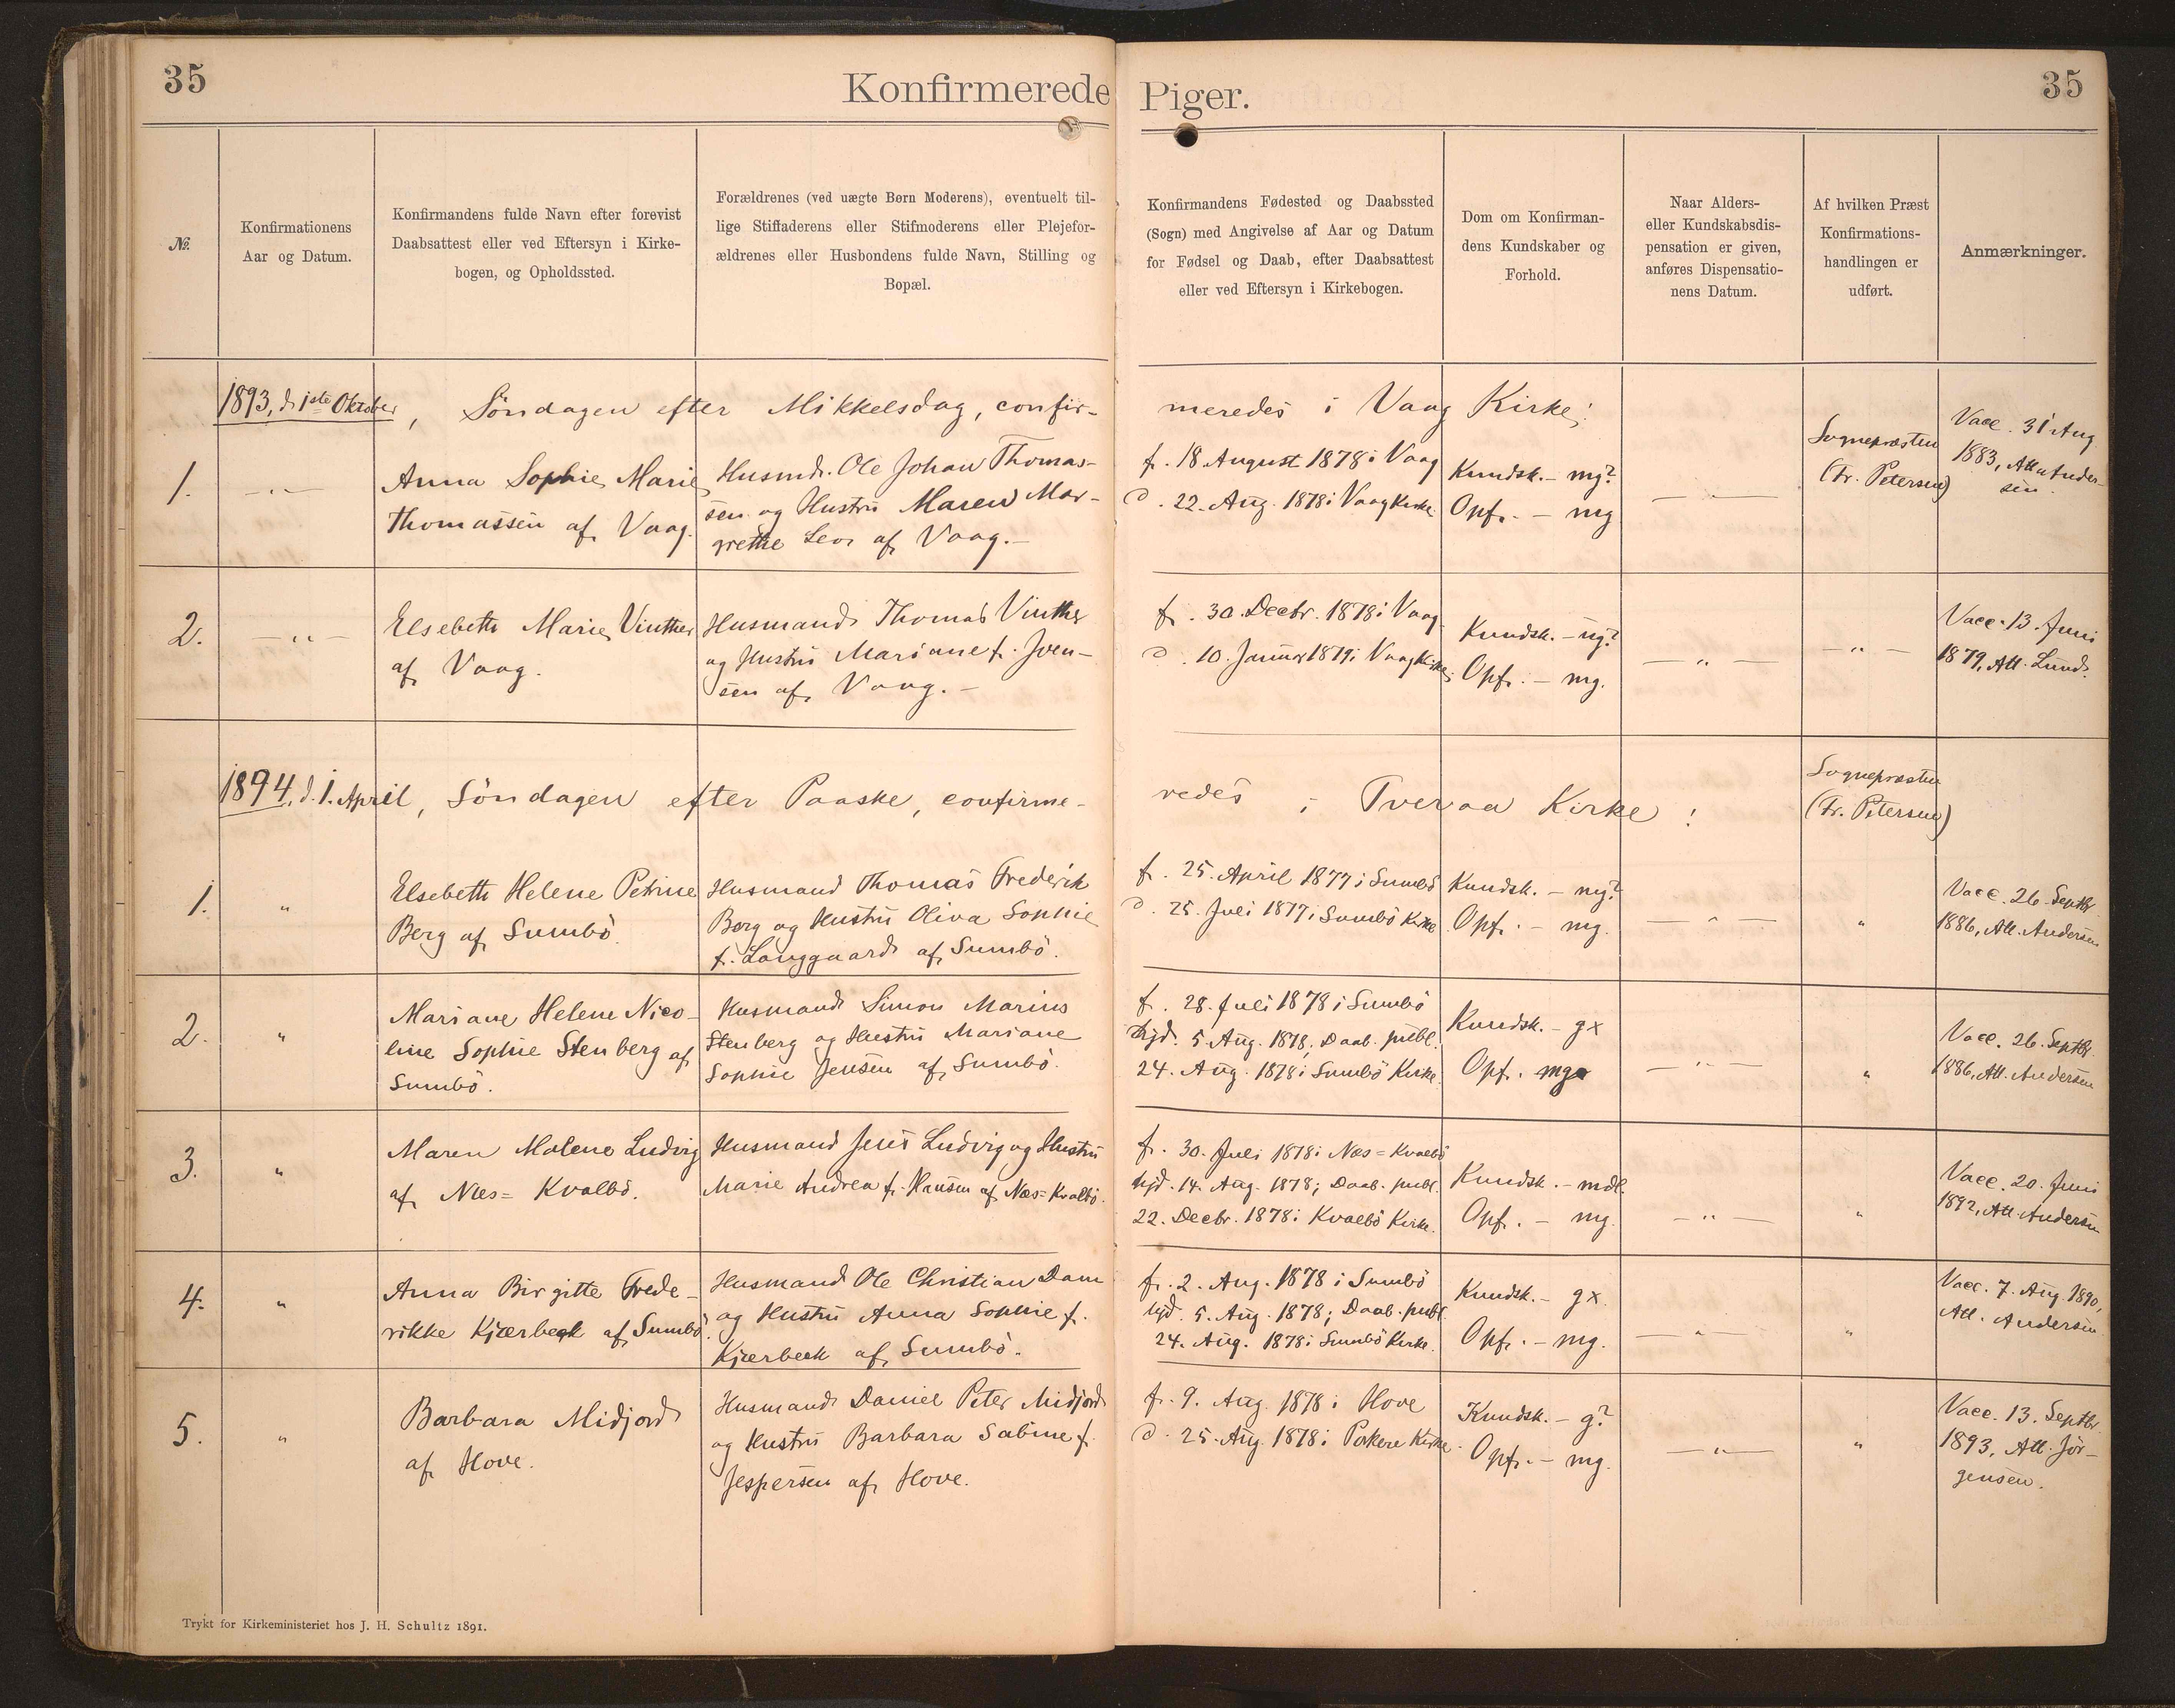 35
Konfirmerede
Piger.
35
№.
Konfirmationens
Aar og Datum.
Konfirmandens fulde Navn efter forevist
Daabsattest eller ved Eftersyn i Kirke-
bogen, og Opholdssted.
Forældrenes (ved uægte Børn Moderens), eventuelt til-
lige Stiffaderens eller Stifmoderens eller Plejefor-
ældrenes eller Husbondens fulde Navn, Stilling og
Bopæl.
Konfirmandens Fødested og Daabssted
(Sogn) med Angivelse af Aar og Datum
for Fødsel og Daab, efter Daabsattest
eller ved Eftersyn i Kirkebogen.
Dom om Konfirman-
dens Kundskaber og
Forhold.
Naar Alders-
eller Kundskabsdis-
pensation er given,
anføres Dispensatio-
nens Datum.
Af hvilken Præst
Konfirmations-
handlingen er
udført.
Anmærkninger.
1893, d. 1ste Oktober, Söndagen efter Mikkelsdag, confir-
meredes i Vaag Kirke:
1. — „ —
Anna Sophie Marie
Thomassen af Vaag.
Husmd. Ole Johan Thomas-
sen og Hustru Maren Mar-
grethe Leor af Vaag. —
f. 18 August 1878 i Vaag
d. 22. Aug. 1878 i Vaag Kirke.
Kundsk. — mg?
Opf. — mg
— „ —
Sognepræsten
(Fr. Petersen)
Vacc. 31 Aug.
1883, Att. Ander-
sen.
2. — „ —
Elsebeth Marie Vinther
af Vaag.
Husmand Thomas Vinther
og Hustru Mariane f. Joen-
sen af Vaag. —
f. 30. Decbr. 1878 i Vaag.
d. 10. Januar 1879 i Vaag Kirke.
Kundsk. — ug?
Opf. — mg.
— „ —
— „ —
Vacc. 13. Juni
1879, Att. Lund.
1894, d. 1. April, Söndagen efter Paaske, confirme-
redes i Tveraa Kirke:
Sognepræsten
(Fr. Petersen)
1. „
Elsebeth Helene Petrine
Berg af Sumbö.
Husmand Thomas Frederik
Berg og Hustru Oliva Sophie
f. Langgaard af Sumbö.
f. 25. April 1877 i Sumbö
d. 25. Juli 1877 i Sumbö Kirke
Kundsk. — mg?
Opf. — mg.
— „ —
„
Vacc. 26. Septbr.
1886, Att. Andersen
2. „
Mariane Helene Nico-
line Sophie Stenberg af
Sumbö.
Husmand Simon Marius
Stenberg og Hustru Mariane
Sophie Jensen af Sumbö.
f. 28. Juli 1878 i Sumbö
hjd. 5. Aug. 1878; Daab. publ.
24. Aug. 1878 i Sumbö Kirke.
Kundsk. — gx
Opf. mg
— „ —
„
Vacc. 26. Septbr.
1886, Att. Andersen
3. „
Maren Malene Ludvig
af Næs = Kvalbö.
Husmand Jens Ludvig og Hustru
Marie Andrea f. Hansen af Næs = Kvalbö.
f. 30. Juli 1878 i Næs = Kvalbö
hjd. 14. Aug. 1878; Daab. publ.
22. Decbr. 1878 i Kvalbö Kirke.
Kundsk. — mdl.
Opf. — mg.
— „ —
„
Vacc. 20. Juni
1892, Att. Andersen
4. „
Anna Birgitte Frede-
rikke Kjærbeck af Sumbö.
Husmand Ole Christian Dam
og Hustru Anna Sophie f.
Kjærbeck af Sumbö.
f. 2. Aug. 1878 i Sumbö
hjd. 5. Aug. 1878; Daab. publ.
24. Aug. 1878 i Sumbö Kirke.
Kundsk. — gx.
Opf. — mg.
— „ —
„
Vacc. 7. Aug. 1890,
Att. Andersen
5. „
Barbara Midjord
af Hove.
Husmand Daniel Peter Midjord
og Hustru Barbara Sabine f.
Jespersen af Hove.
f. 9. Aug. 1878 i Hove
d. 25. Aug. 1878 i Porkere Kirke.
Kundsk. — g?
Opf. — mg.
— „ —
„
Vacc. 13. Septbr.
1893, Att. Jör-
gensen.
Trykt for Kirkeministeriet hos J. H. Schultz 1891.